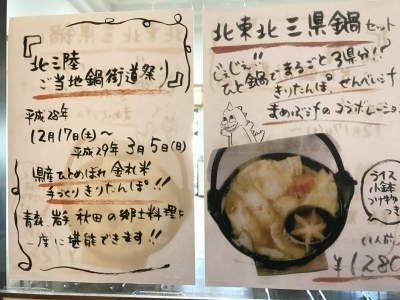 北三陸
ご当地鍋街道祭り
平成28年
12月17日(土)〜
平成29年3月5日(日)
県産ひとめぼれ金札米
手づくりきりたんぽ!!
青森、岩手、秋田の郷土料理を
一度に堪能できます!!
北東北三県鍋セット
じぇじぇ!!
ひと鍋でまるごと3県分!?
きりたんぽ せんべい汁
まめぶ汁のコラボレーション
ライス
小鉢
つけ物
つき
(1人前)
¥1280